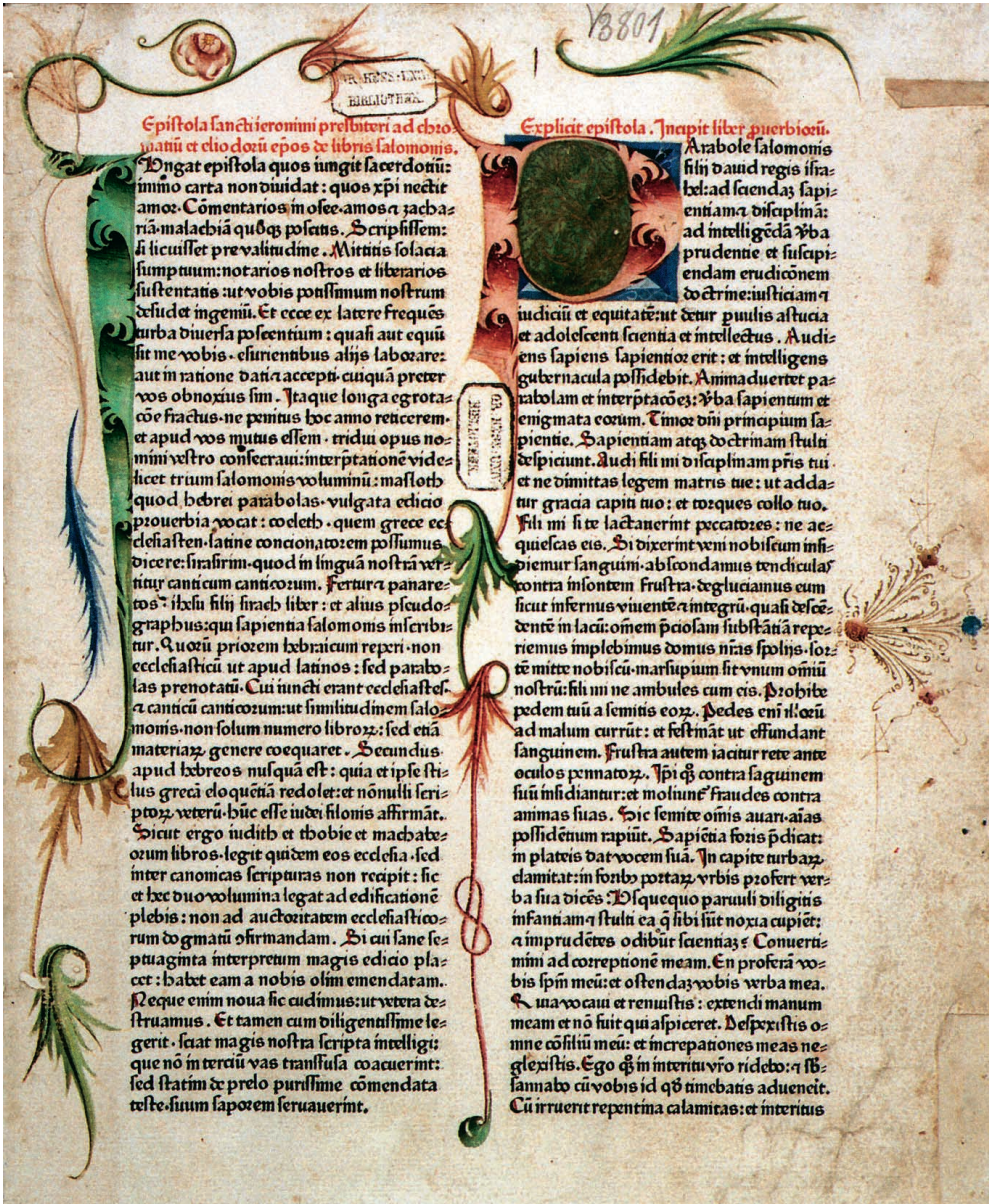 V3801
GR. HESS. UNIV.
BIBLIOTHEK.
Epistola sancti ieronimi presbiteri ad chro⸗
matiū et eliodorū epos de libris salomonis.
IUngat epistola quos iungit sacerdotiū:
immo carta non diuidat: quos xp̄i nectit
amor. Cōmentarios in osee. amos ⁊ zacha⸗
riā. malachiā quōꝫ poscitis. Scripsissem:
si licuisset pre valitudine. Mittitis solacia
sumptuum: notarios nostros et librarios
sustentatis: ut vobis potissimum nostrum
desudet ingeniū. Et ecce ex latere frequēs
turba diuersa poscentium: quasi aut equū
sit me vobis. esurientibus alijs laborare:
aut in ratione dati ⁊ accepti. cuiquā preter
vos obnoxius sim. Itaque longa egrota⸗
cōe fractus. ne penitus hoc anno reticerem.
et apud vos mutus essem. tridui opus no⸗
mini vestro consecraui: interp̄tationē vide⸗
licet trium salomonis voluminū: masloth
quod hebrei parabolas. vulgata edicio
prouerbia vocat: coeleth. quem grece ec⸗
clesiasten. latine concionatorem possumus
dicere: sirasirim. quod in linguā nostrā ver⸗
titur canticum canticorum. Fertur ⁊ panare⸗
tos. ihesu filij sirach liber: et alius pseudo⸗
graphus: qui sapientia salomonis inscribi⸗
tur. Quorū priorem hebraicum reperi. non
ecclesiasticū ut apud latinos: sed parabo⸗
las prenotatū. Cui iuncti erant ecclesiastes.
⁊ canticū canticorum: ut similitudinem salo⸗
monis. non solum numero libroꝝ: sed etiā
materiaꝝ genere coequaret. Secundus
apud hebreos nusquā est: quia et ipse sti⸗
lus grecā eloquētiā redolet: et nōnulli scri⸗
ptoꝝ veterū. hūc esse iudei filonis affirmāt.
Sicut ergo iudith et thobie et machabe⸗
orum libros. legit quidem eos ecclesia. sed
inter canonicas scripturas non recipit: sic
et hec duo volumina legat ad edificationē
plebis: non ad auctoritatem ecclesiastico⸗
rum dogmatū ꝯfirmandam. Si cui sane se⸗
ptuaginta interpretum magis edicio pla⸗
cet: habet eam a nobis olim emendatam.
Neque enim noua sic cudimus: ut vetera de⸗
struamus. Et tamen cum diligentissime le⸗
gerit. sciat magis nostra scripta intelligi:
que nō in terciū vas transfusa coacuerint:
sed statim de prelo purissime cōmendata
teste. suum saporem seruauerint.
Explicit epistola. Incipit liber ꝓuerbiorū.
PArabole salomonis
filij dauid regis isra⸗
hel: ad sciendaꝫ sapi⸗
entiam ⁊ disciplinā:
ad intelligēdā ꝟba
prudentie et suscipi⸗
endam erudicōnem
doctrine: iusticiam ⁊
iudiciū et equitatē: ut detur ꝑuulis astucia
et adolescenti scientia et intellectus. Audi⸗
ens sapiens sapientior erit: et intelligens
gubernacula possidebit. Animaduertet pa⸗
rabolam et interp̄tacōeꝫ: ꝟba sapientum et
enigmata eorum. Timor dn̄i principium sa⸗
pientie. Sapientiam atqꝫ doctrinam stulti
despiciunt. Audi fili mi disciplinam pr̄is tui
et ne dimittas legem matris tue: ut adda⸗
tur gracia capiti tuo: et torques collo tuo.
Fili mi si te lactauerint peccatores: ne ac⸗
quiescas eis. Si dixerint veni nobiscum insi⸗
diemur sanguini. abscondamus tendiculas
contra insontem frustra. degluciamus eum
sicut infernus viuentē ⁊ integrū. quasi descē⸗
dentē in lacū: om̄em p̄ciosam substātiā repe⸗
riemus implebimus domus nr̄as spolijs. sor⸗
tē mitte nobiscū. marsupium sit vnum om̄iū
nostrū: fili mi ne ambules cum eis. Prohibe
pedem tuū a semitis eoꝝ. Pedes enī illorū
ad malum currūt: et festināt ut effundant
sanguinem. Frustra autem iacitur rete ante
oculos pennatoꝝ. Ip̄i qꝫ contra saguinem
suū insidiantur: et moliunt᷑ fraudes contra
animas suas. Sic semite om̄is auari. aīas
possidētium rapiūt. Sapiētia foris p̄dicat:
in plateis dat vocem suā. In capite turbaꝝ
clamitat: in foribꝰ portaꝝ vrbis profert ver⸗
ba sua dicēs: Usquequo paruuli diligitis
infantiam ⁊ stulti ea q̄ sibi sūt noxia cupiēt:
⁊ imprudētes odibūt scientiaꝫ? Conuerti⸗
mini ad correptionē meam. En proferā vo⸗
bis spm̄ meū: et ostendaꝫ vobis verba mea.
Quia vocaui et renuistis: extendi manum
meam et nō fuit qui aspiceret. Despexistis o⸗
mne cōsiliū meū: et increpationes meas ne⸗
glexistis. Ego qꝫ in interitu vr̄o ridebo: ⁊ sb̄⸗
sannabo cū vobis id qd̄ timebatis aduenēit.
Cū irruerit repentina calamitas: et interitus
GR. HESS. UNIV.
BIBLIOTHEK.